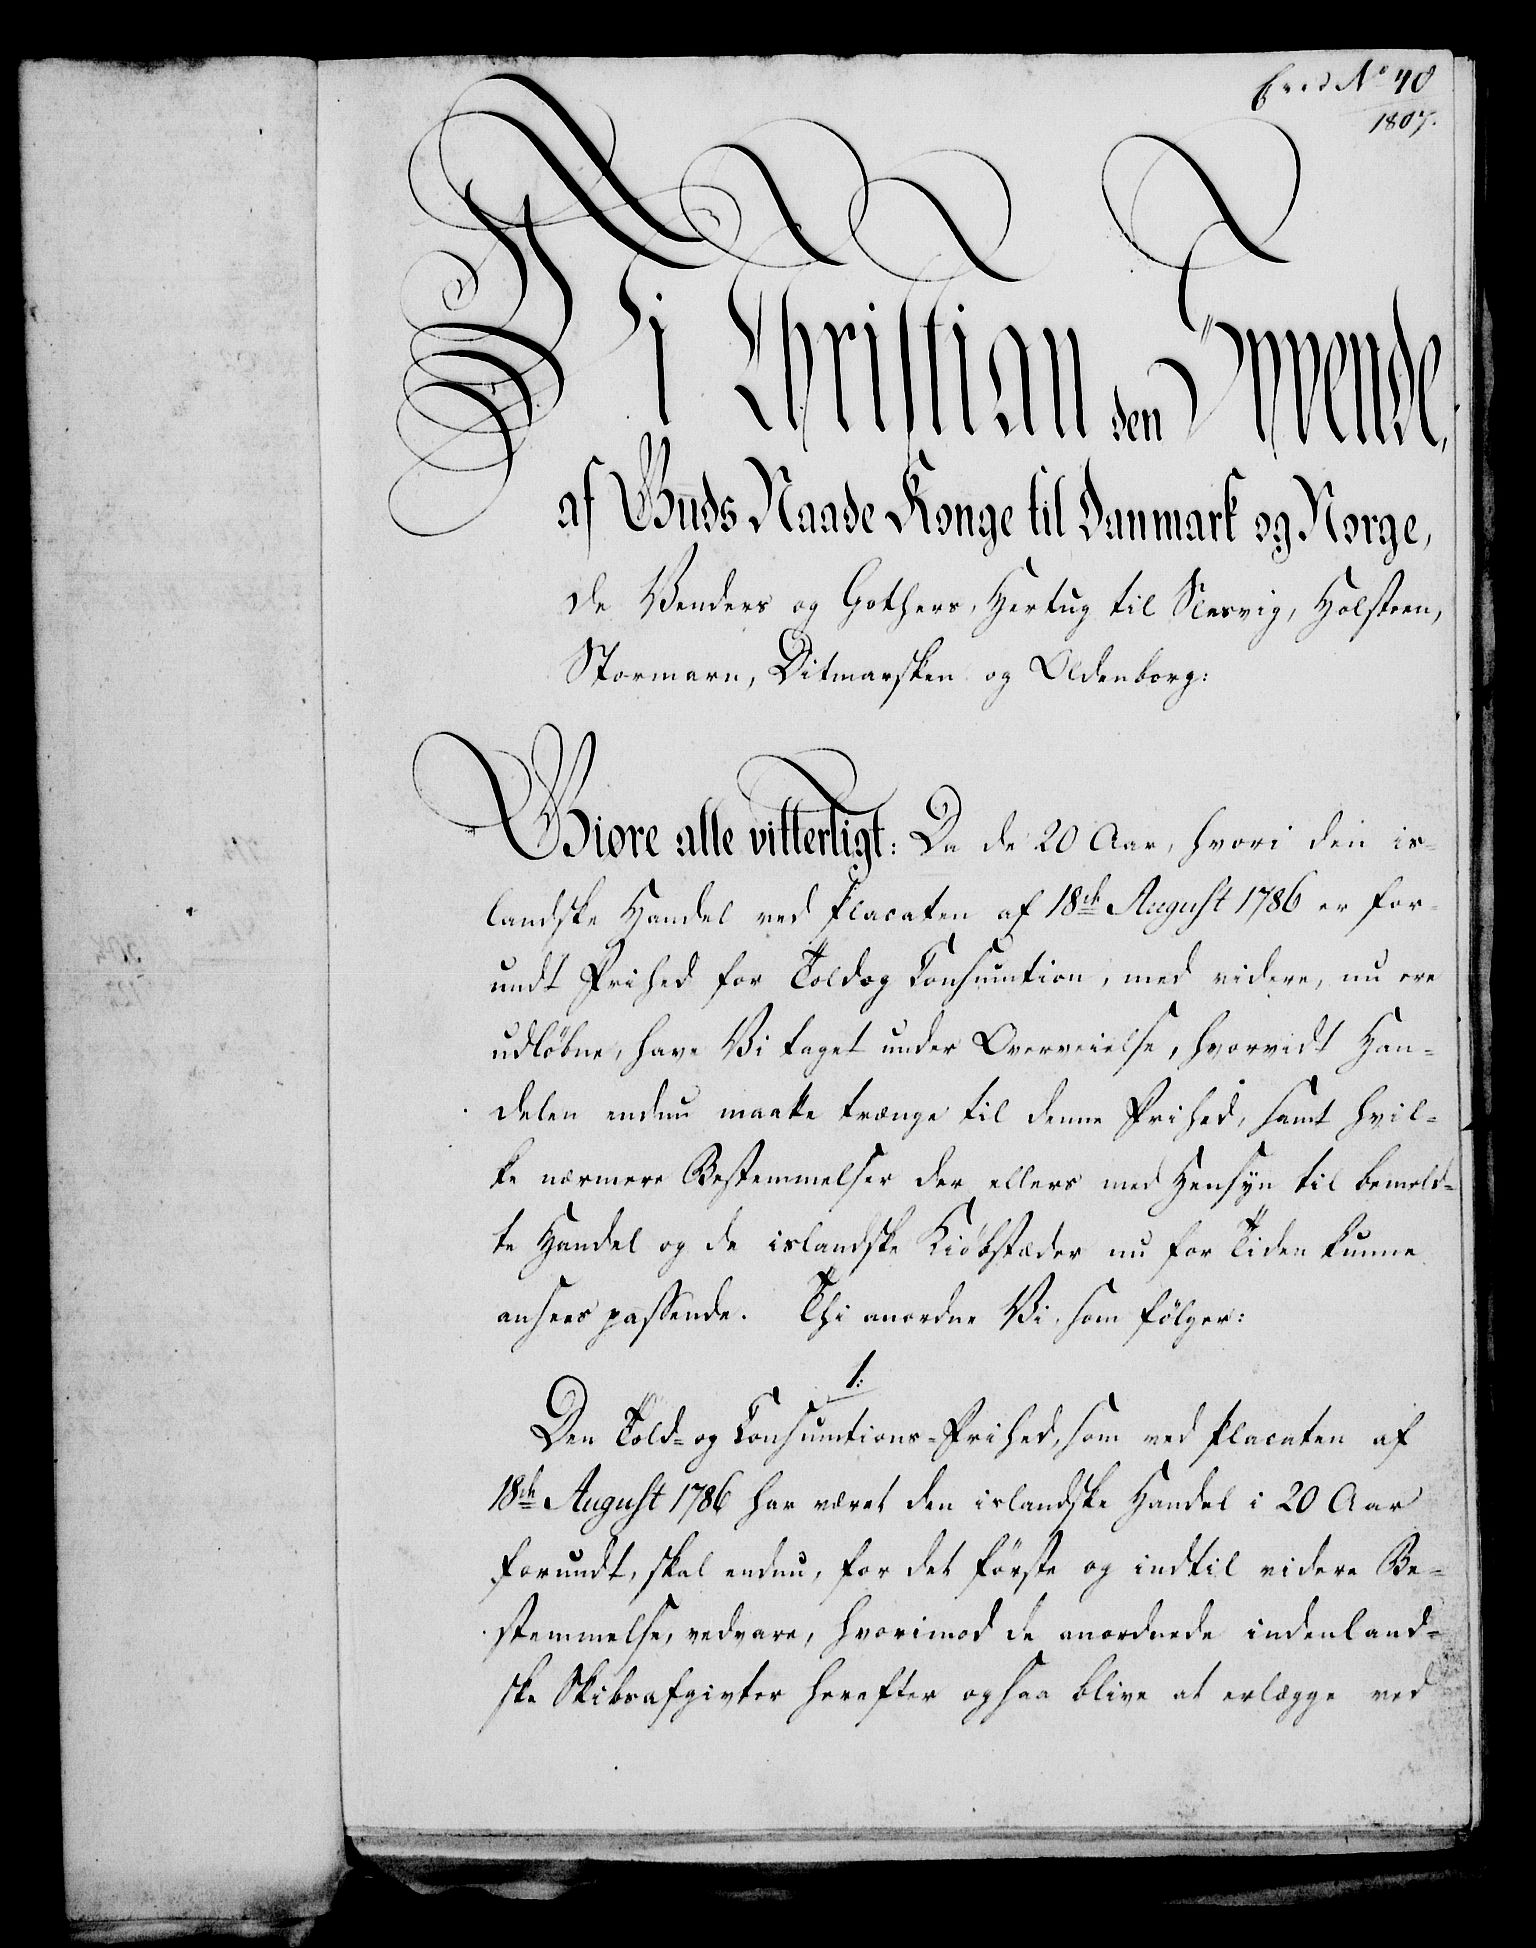 No 40
1807.
Vi Christian den Syvende,
af Guds Naade Konge til Danmark og Norge,
de Venders og Gothers, Hertug til Slesvig, Holsteen,
Stormarn, Ditmarsken og Oldenborg:
Giøre alle vitterligt: Da de 20 Aar, hvori den is-
landske Handel ved Placaten af 18de August 1786 er for-
undt Frihed for Told og Consumtion, med videre, nu ere
udløbne, have Vi taget under Overveielse, hvorvidt Han-
delen endnu maatte trænge til denne Frihed, samt hvil-
ke nærmere Bestemmelser der ellers med Hensyn til bemeld-
te Handel og de islandske Kiøbstæder nu for Tiden kunne
ansees passende. Thi anordne Vi, som følger:
1:
Den Told- og Consumtions-Frihed, som ved Placaten af
18de August 1786 har været den islandske Handel i 20 Aar
forundt, skal endnu, for det første og indtil videre Be-
stemmelse, vedvare, hvorimod de anordnede indenland-
ske Skibsafgivter herefter ogsaa blive at erlægge ved